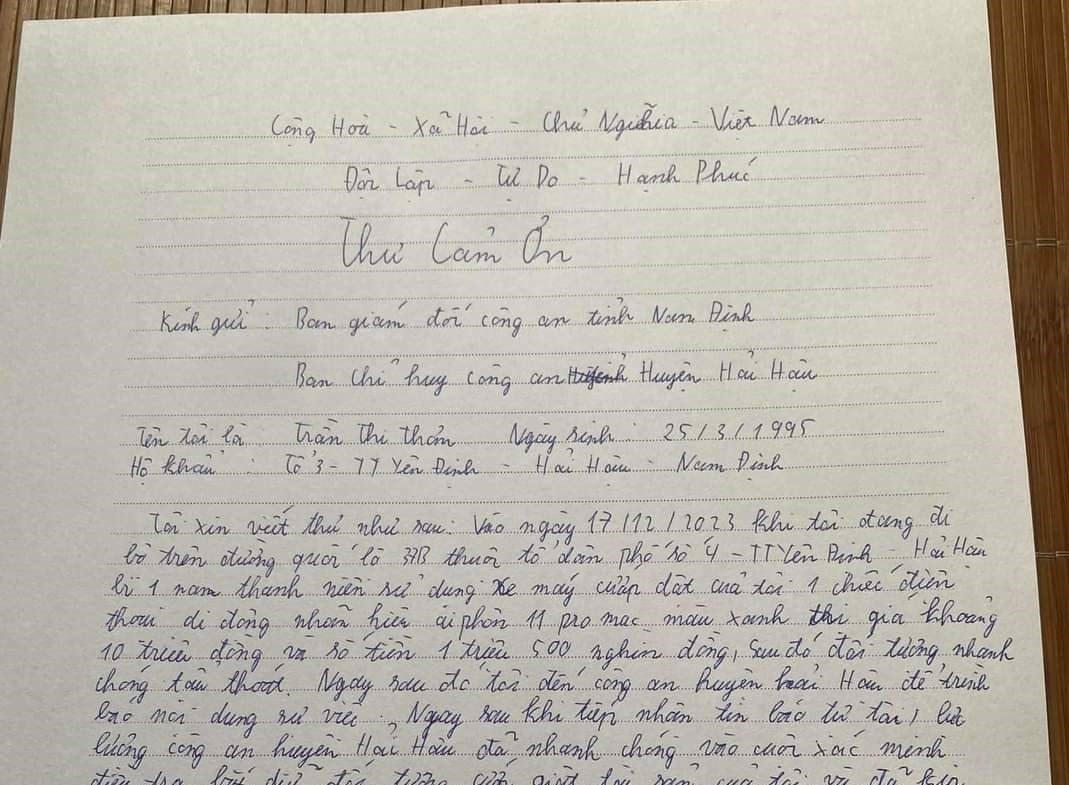 Cộng Hoà - Xã Hội - Chủ Nghĩa - Việt Nam
Độc Lập - Tự Do - Hạnh Phúc
Thư Cảm Ơn
Kính gửi : Ban giám đốc công an tỉnh Nam Định
Ban chỉ huy công an Huyện Hải Hậu
Tên tôi là : Trần Thị Thơm Ngày sinh : 25/3/1995
Hộ khẩu : Tổ 3 - TT Yên Định - Hải Hậu - Nam Định
Tôi xin viết thư như sau: Vào ngày 17/12/2023 khi tôi đang đi
bộ trên đường quốc lộ 37B thuộc tổ dân phố số 4 - TT Yên Định - Hải Hậu
bị 1 nam thanh niên sử dụng xe máy cướp dật của tôi 1 chiếc điện
thoại di động nhãn hiệu ai phôn 11 pro mac màu xanh thị giá khoảng
10 triệu đồng và số tiền 1 triệu 500 nghìn đồng, sau đó đối tượng nhanh
chóng tẩu thoát. Ngay sau đó tôi đến công an huyện hải Hậu để trình
báo nội dung sự việc. Ngay sau khi tiếp nhận tin báo từ tôi, lực
lượng công an huyện Hải Hậu đã nhanh chóng vào cuộc xác minh
điều tra bắt đối tượng cướp giật tài sản của tôi và đã